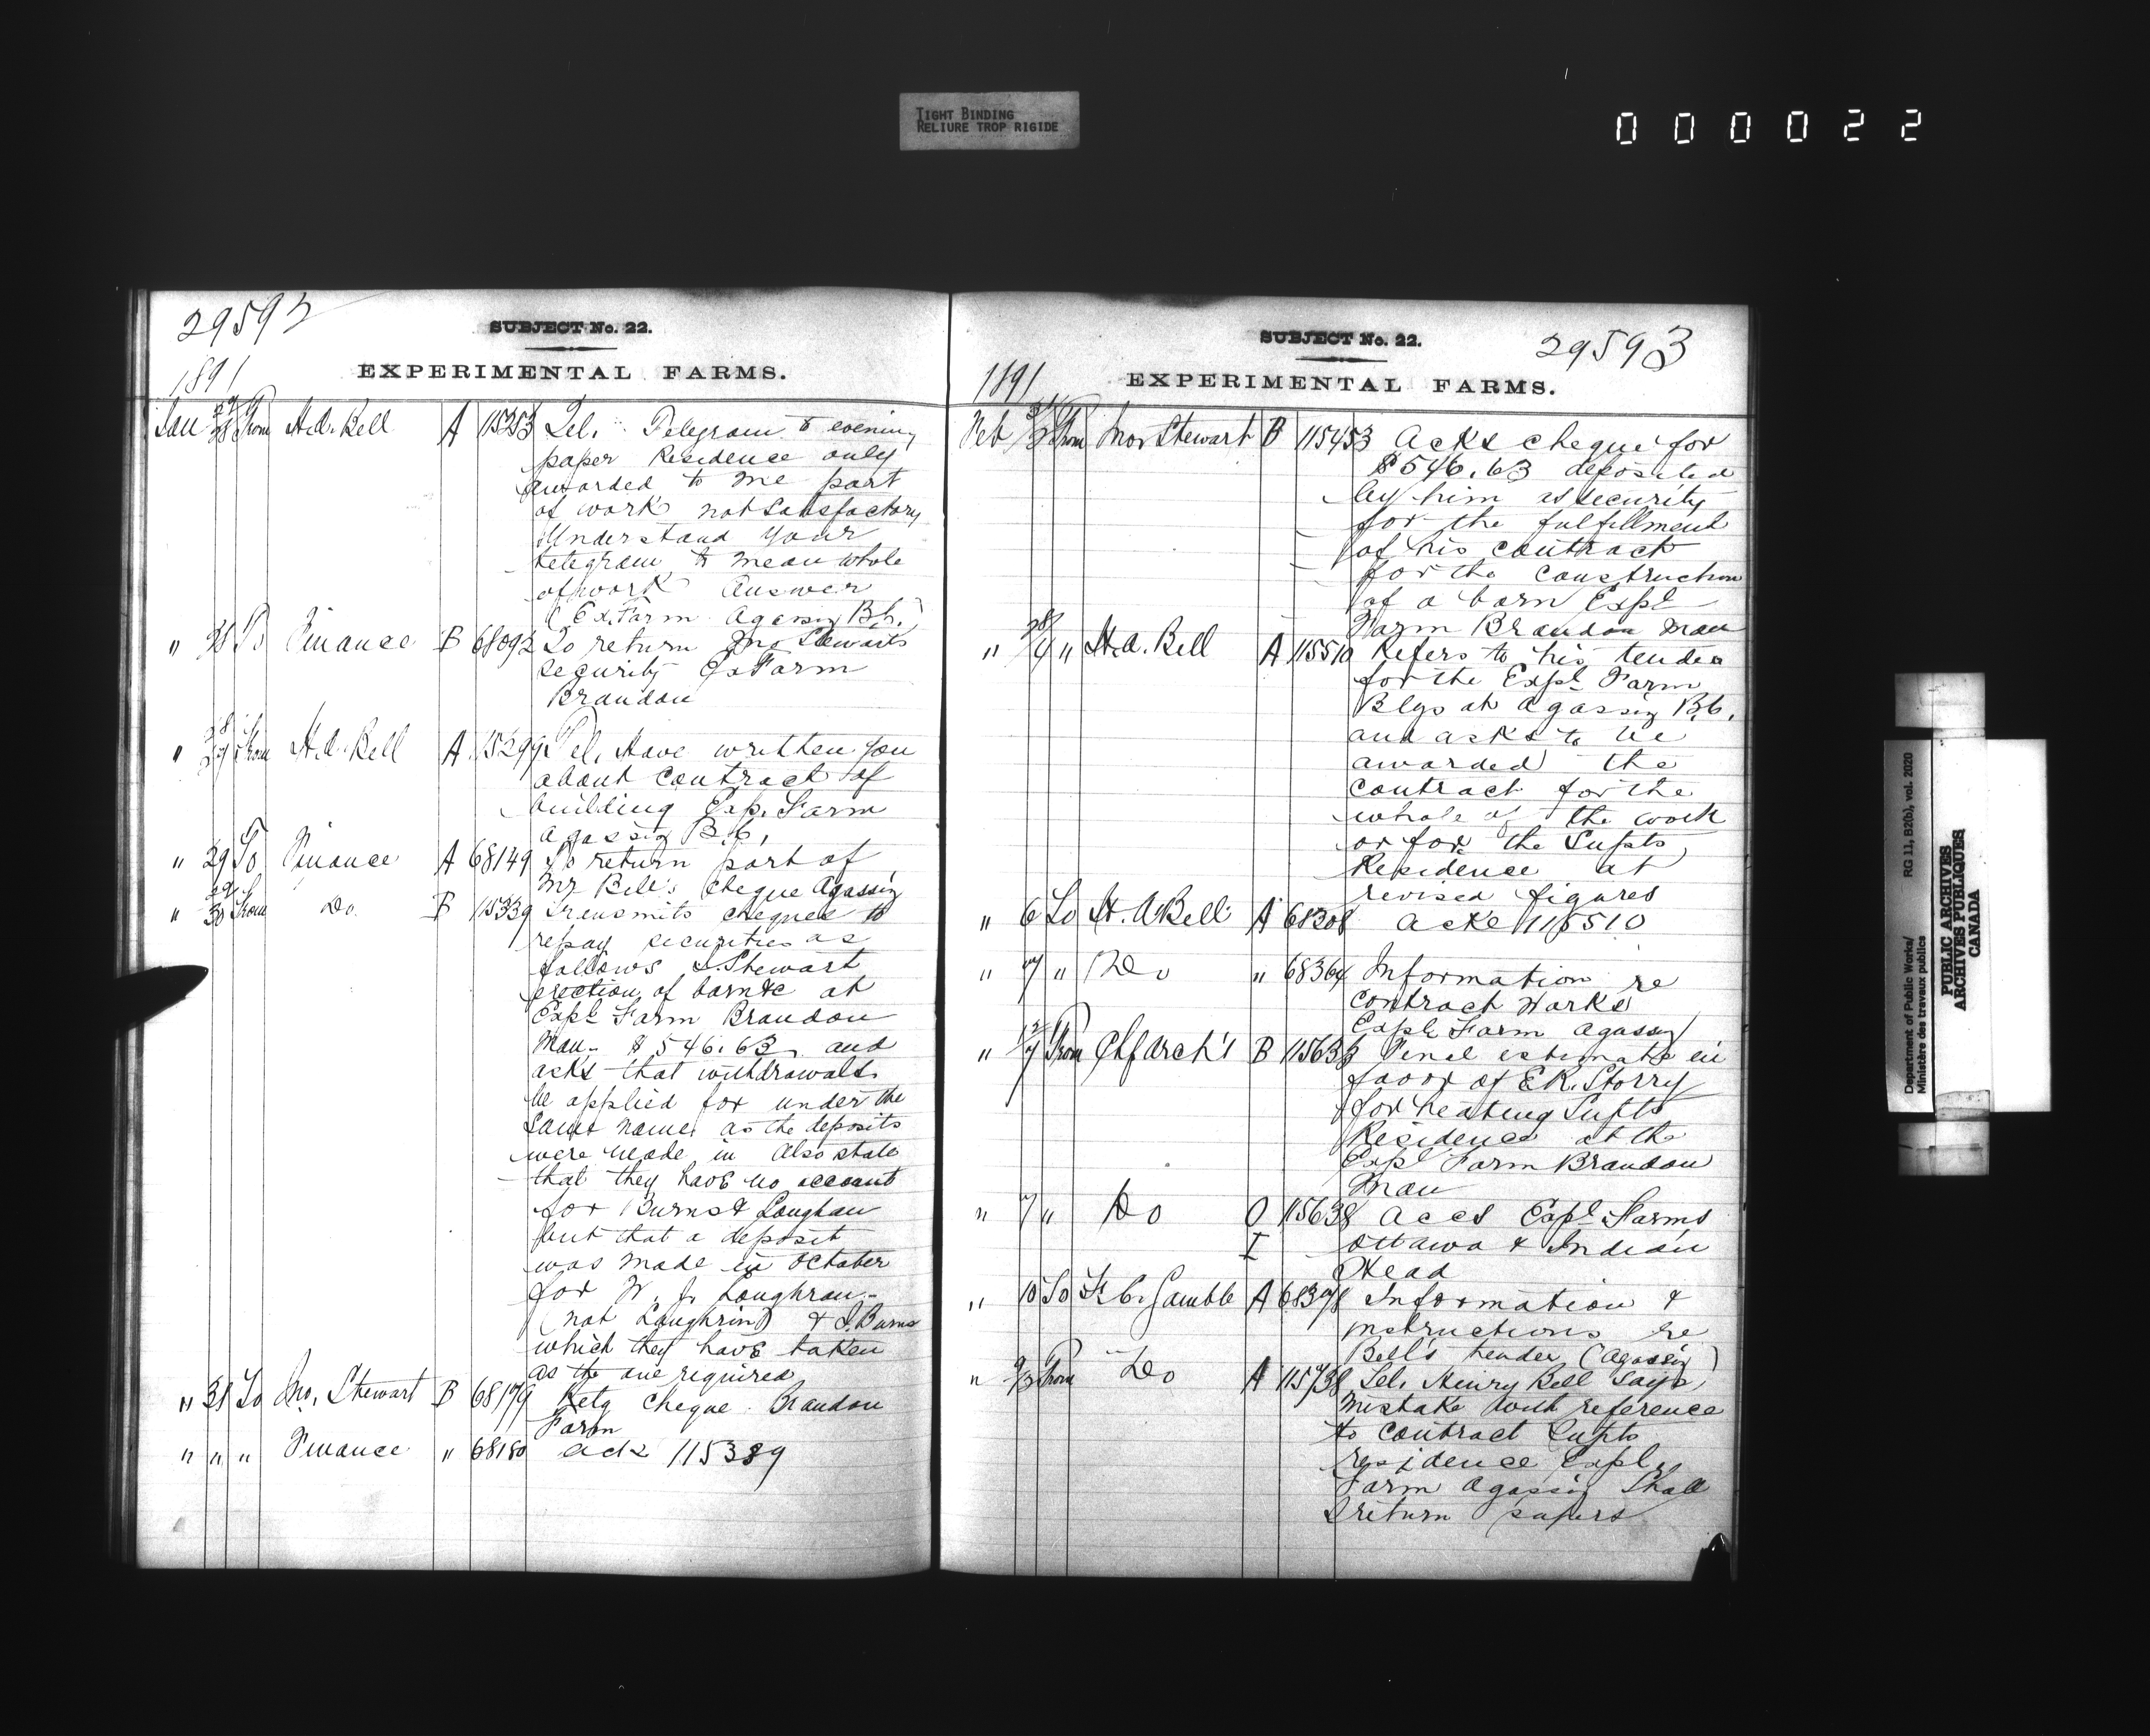 TIGHT BINDING
RELIURE TROP RIGIDE
000022
29592
SUBJECT No. 22.
1891
EXPERIMENTAL FARMS.
Jan 27/28 From H.A. Bell A 115253 Tel. Telegram & evening
paper Residence only
awarded to me part
of work not satisfactory
Understand your
telegram to mean whole
of work Answer
(Ex. Farm Agassiz B.C.)
" 28 To Finance B 68092 To return Jno Stewarts
security Ex Farm
Brandon
" 28/29 From H.A. Bell A 115299 Tel. Have written you
about contract of
building Exp. Farm
Agassiz B.C.
" 29 To Finance A 68149 To return part of
Mr Bell's cheque Agassiz
" 29/30 From Do B 115339 Transmits cheques to
repay securities as
follows J. Stewart
erection of barn &c at
Expl Farm Brandon
Man. $546.63 and
asks that withdrawals
be applied for under the
same names as the deposits
were made in Also state
that they have no account
for Burns & Loughan
but that a deposit
was made in October
for W. J. Loughran
(not Laughrin) & J. Burns
which they have taken
as the one required
" 31 To Jno. Stewart B 68179 Retg cheque Brandon
Farm
" " " Finance " 68180 ack 115339
SUBJECT No. 22.
29593
1891
EXPERIMENTAL FARMS.
Feb 31/2 From Jno Stewart B 115453 Acks cheque for
$546.63 deposited
by him as security
for the fulfillment
of his contract
for the construction
of a barn Expl
Farm Brandon Man
" 28/4 " H.A. Bell A 115510 Refers to his tender
for the Expl Farm
Blgs at Agassiz B.C.
and asks to be
awarded the
contract for the
whole of the work
or for the Supts
Residence at
revised figures
" 6 To H. A Bell A 68308 Acke 115510
" 7 " Do " 68364 Information re
Contract Works
Expl Farm Agassiz
" From Chf Arch't B 11563 Final estimate in
favor of E.R. Storry
for heating Supts
Residence at the
Expl Farm Brandon
Man
" 7 " Do O 115638 Accs Expl Farms
I Ottawa & Indian
Head
" 10 To F.C. Gamble A 68398 Information &
instructions re
Bell's tender (Agassiz)
" From Do A 115738 Tel. Henry Bell says
mistake with reference
to contract Supts
residence Expl
Farm Agassiz Shall
I return papers
Department of Public Works/ RG 11, B2(b), vol. 2020
Ministère des travaux publics
PUBLIC ARCHIVES
ARCHIVES PUBLIQUES
CANADA